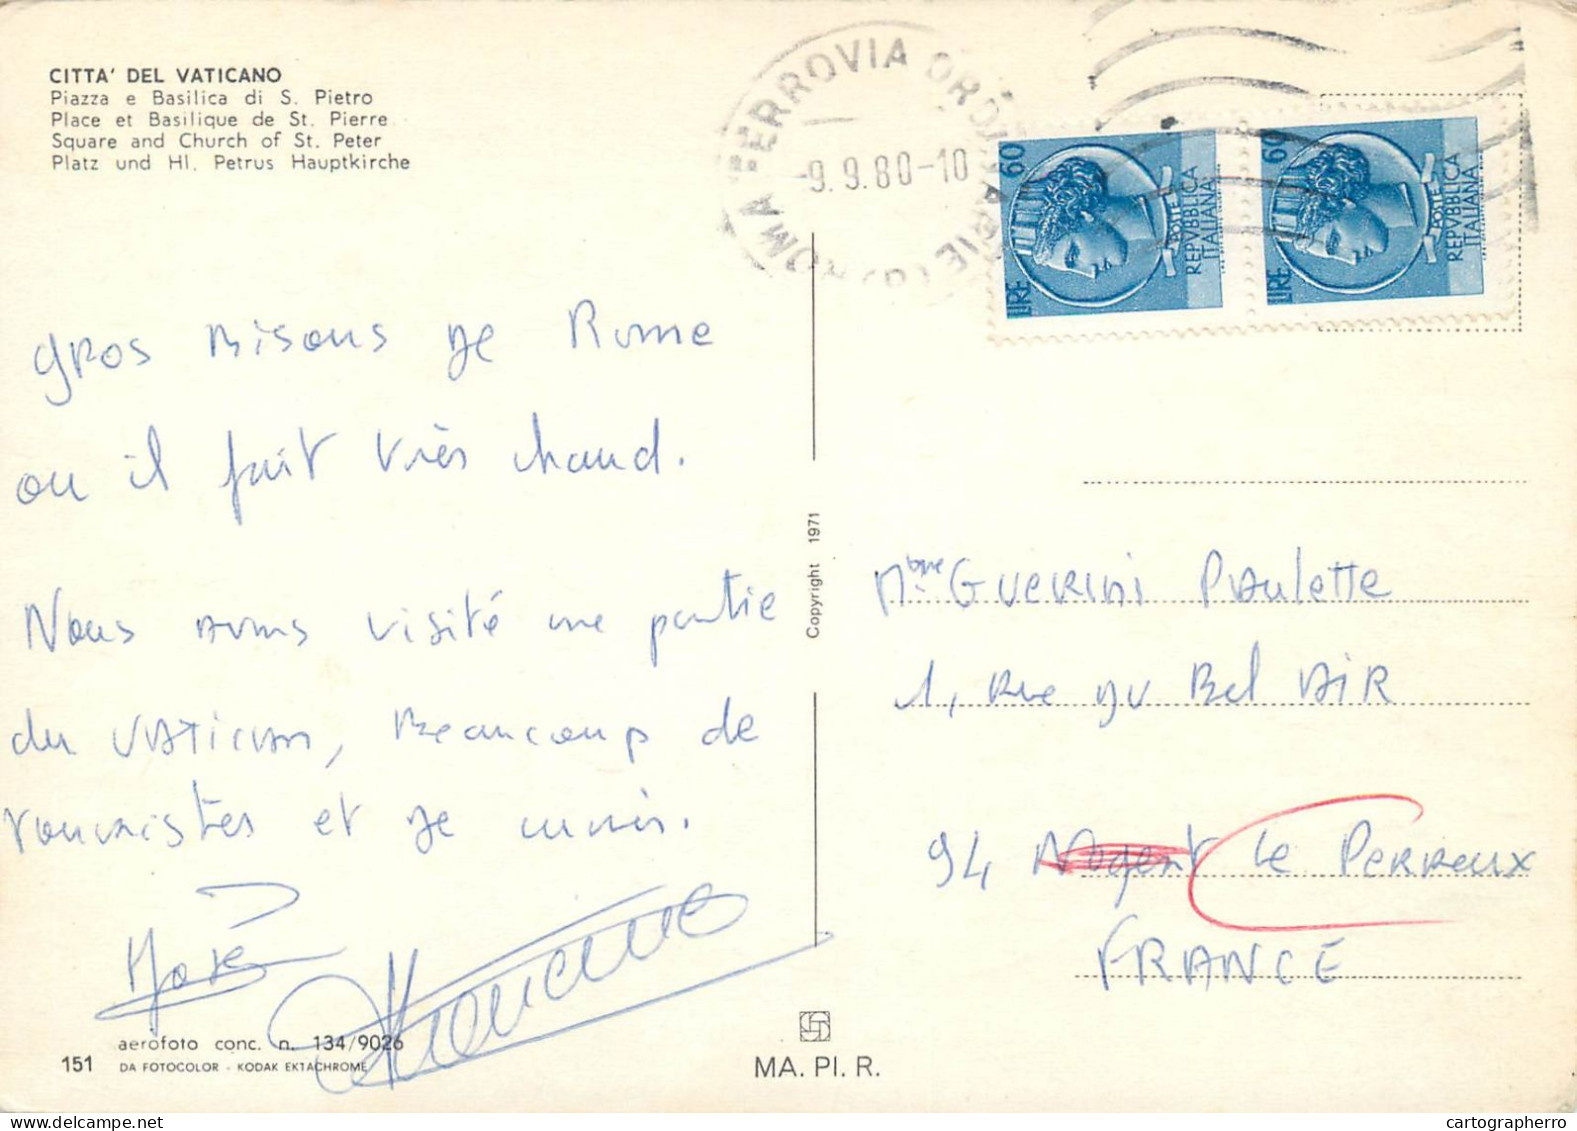 CITTA' DEL VATICANO
Piazza e Basilica di S. Pietro
Place et Basilique de St. Pierre
Square and Church of St. Peter
Platz und Hl. Petrus Hauptkirche
ROMA FERROVIA
-9.9.80-10
60
LIRE
POSTE
REPVBBLICA
ITALIANA
60
LIRE
POSTE
REPVBBLICA
ITALIANA
gros Bisous de Rome
ou il fait très chaud.
Nous avons visité une partie
du Vatican, Beaucoup de
touristes et de curés.
Copyright 1971
Mme GUERINI PAulette
1, Rue du Bel AIR
94 Nogent Le Perreux
FRANCE
151
aerofoto conc. n. 134/9026
DA FOTOCOLOR - KODAK EKTACHROME
MA. PI. R.
cartographerro